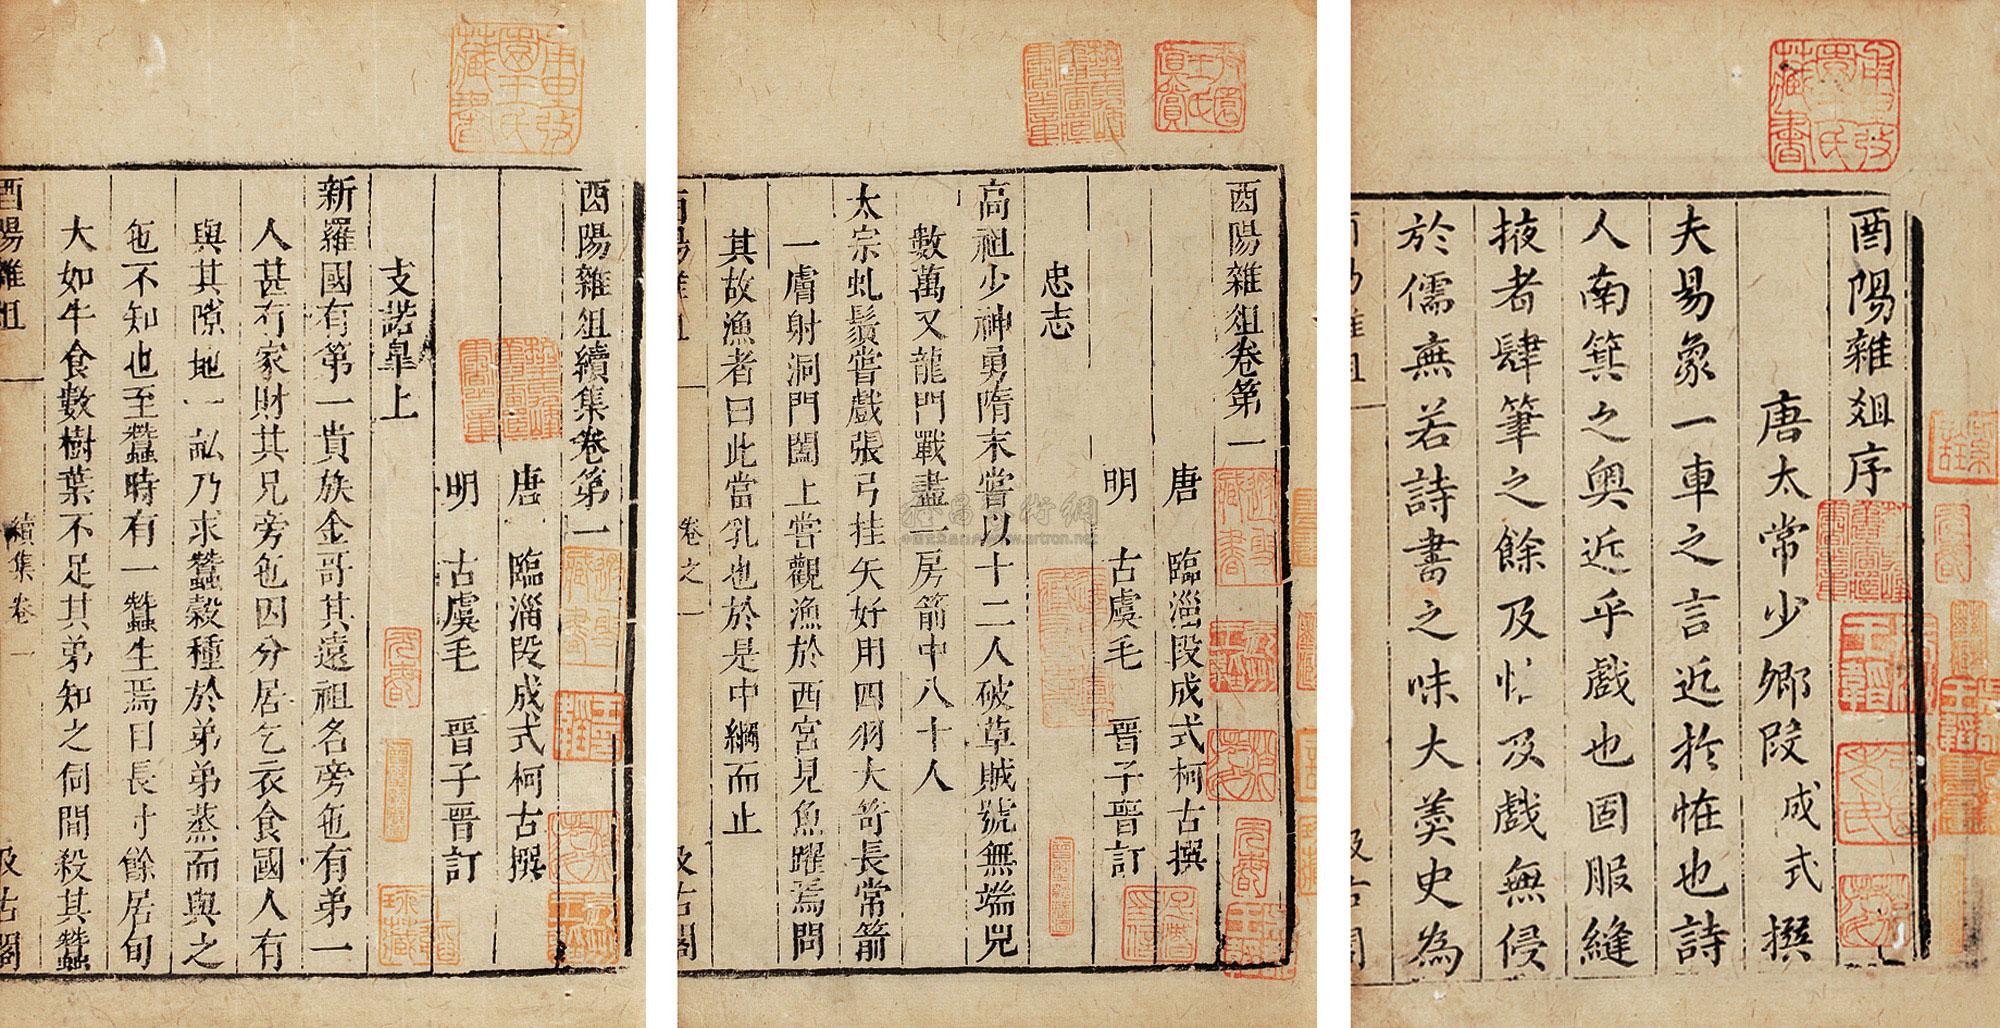 酉陽雜俎序
唐太常少卿段成式撰
夫易象一車之言近於怪也詩
人南箕之奧近乎戲也固服縫
掖者肆筆之餘及怪及戲無侵
於儒無若詩書之味大羹史為
酉陽雜俎卷第一
唐 臨淄段成式柯古撰
明 古虞毛 晉子晉訂
忠志
高祖少神勇隋末嘗以十二人破草賊號無端兒
數萬又龍門戰盡一房箭中八十人
太宗虬鬚嘗戲張弓挂矢好用四羽大笴長常箭
一膚射洞門闔上嘗觀漁於西宮見魚躍焉問
其故漁者曰此當乳也於是中網而止
酉陽雜俎 卷之一 汲古閣
www.artron.net
酉陽雜俎續集卷第一
唐 臨淄段成式柯古撰
明 古虞毛 晉子晉訂
支諾皐上
新羅國有第一貴族金哥其遠祖名旁㐌有弟一
人甚有家財其兄旁㐌因分居乞衣食國人有
與其隙地一畝乃求蠶穀種於弟弟蒸而與之
㐌不知也至蠶時有一蠶生焉日長寸餘居旬
大如牛食數樹葉不足其弟知之伺間殺其蠶
酉陽雜俎 續集卷一 汲古閣